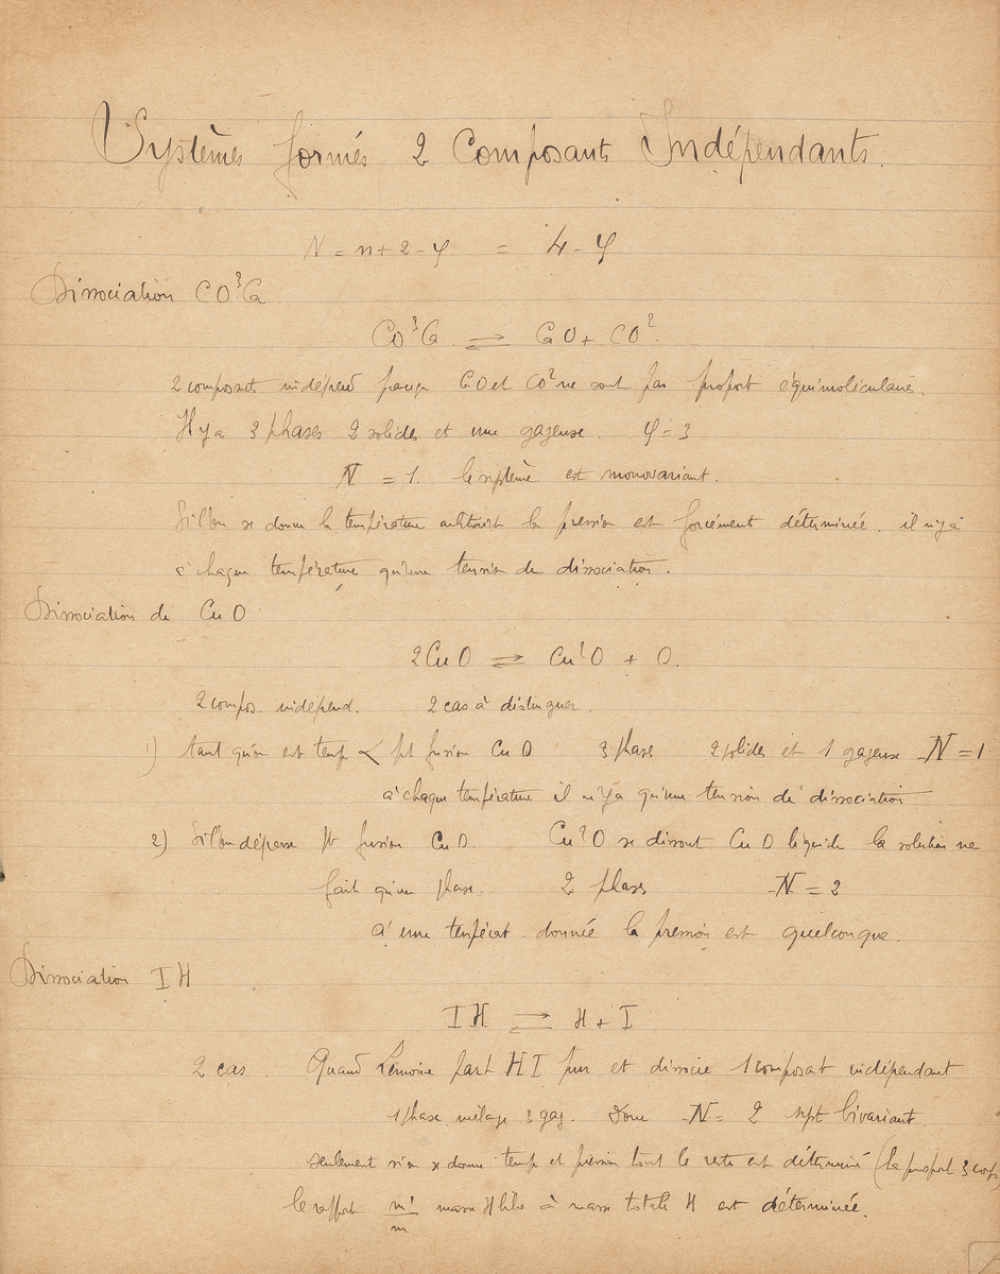 Systèmes formés 2 Composants Indépendants.
N = n + 2 - φ = 4 - φ
Dissociation CO³Ca
CO³Ca ⇌ CaO + CO².
2 composants indépend parceq CaO et CO² ne sont pas proport équimoléculaires.
Il y a 3 phases 2 solides et une gazeuse. φ = 3
N = 1. le système est monovariant.
Si l'on se donne la température la pression est forcément déterminée. il n'y a
à chaque température qu'une tension de dissociation.
Dissociation de CuO
2CuO ⇌ Cu²O + O.
2 compos. indépend. 2 cas à distinguer.
1) tant qu'on est temp < pt fusion CuO 3 phase 2 solides et 1 gazeuse N = 1
à chaque température il n'y a qu'une tension de dissociation
2) Si l'on dépasse pt fusion CuO. Cu²O se dissout CuO liquide la solution ne
fait qu'une phase. 2 phases N = 2
à une températ. donnée la pression est quelconque.
Dissociation IH
IH ⇌ H + I
2 cas Quand Lemoine part HI pur et dissocie 1 composat indépendant
1 phase mélange 3 gaz. Donc N = 2 syst bivariant.
seulement si on se donne temp et pression tout le reste est déterminé (la proport 3 corps
le rapport m'/m masse H libre à masse totale H est déterminée.